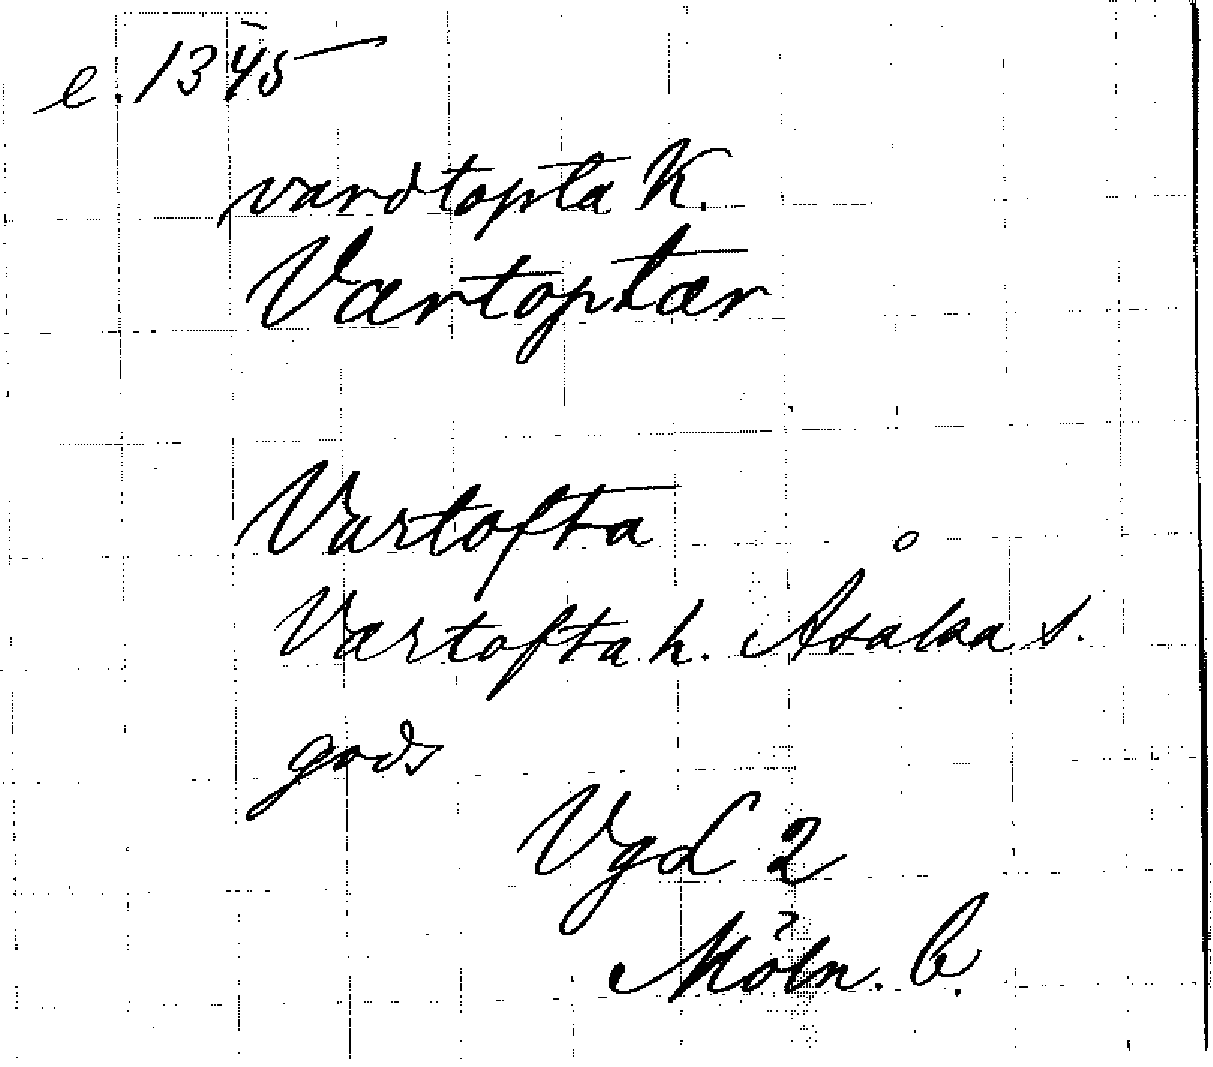 e. 1345
vardtopta K.
Værtoptær
Vartofta
Vartofta h. Åsaka s.
gods
Vgd 2
Möln. B.